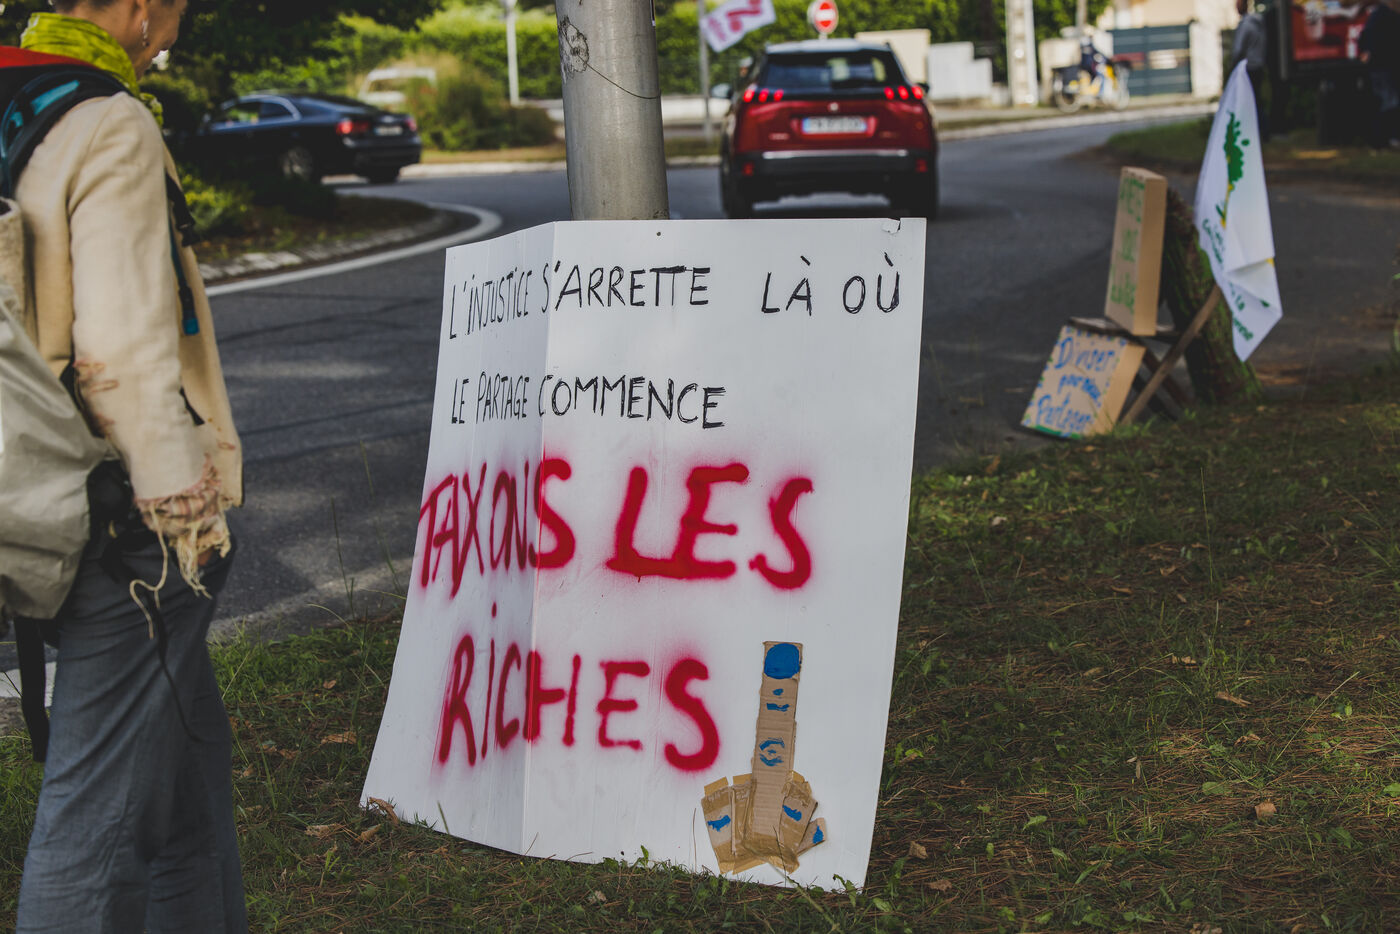 L'INJUSTICE S'ARRETTE LÀ OÙ
LE PARTAGE COMMENCE
TAXONS LES
RICHES
Diviser
pour mieux
Partager